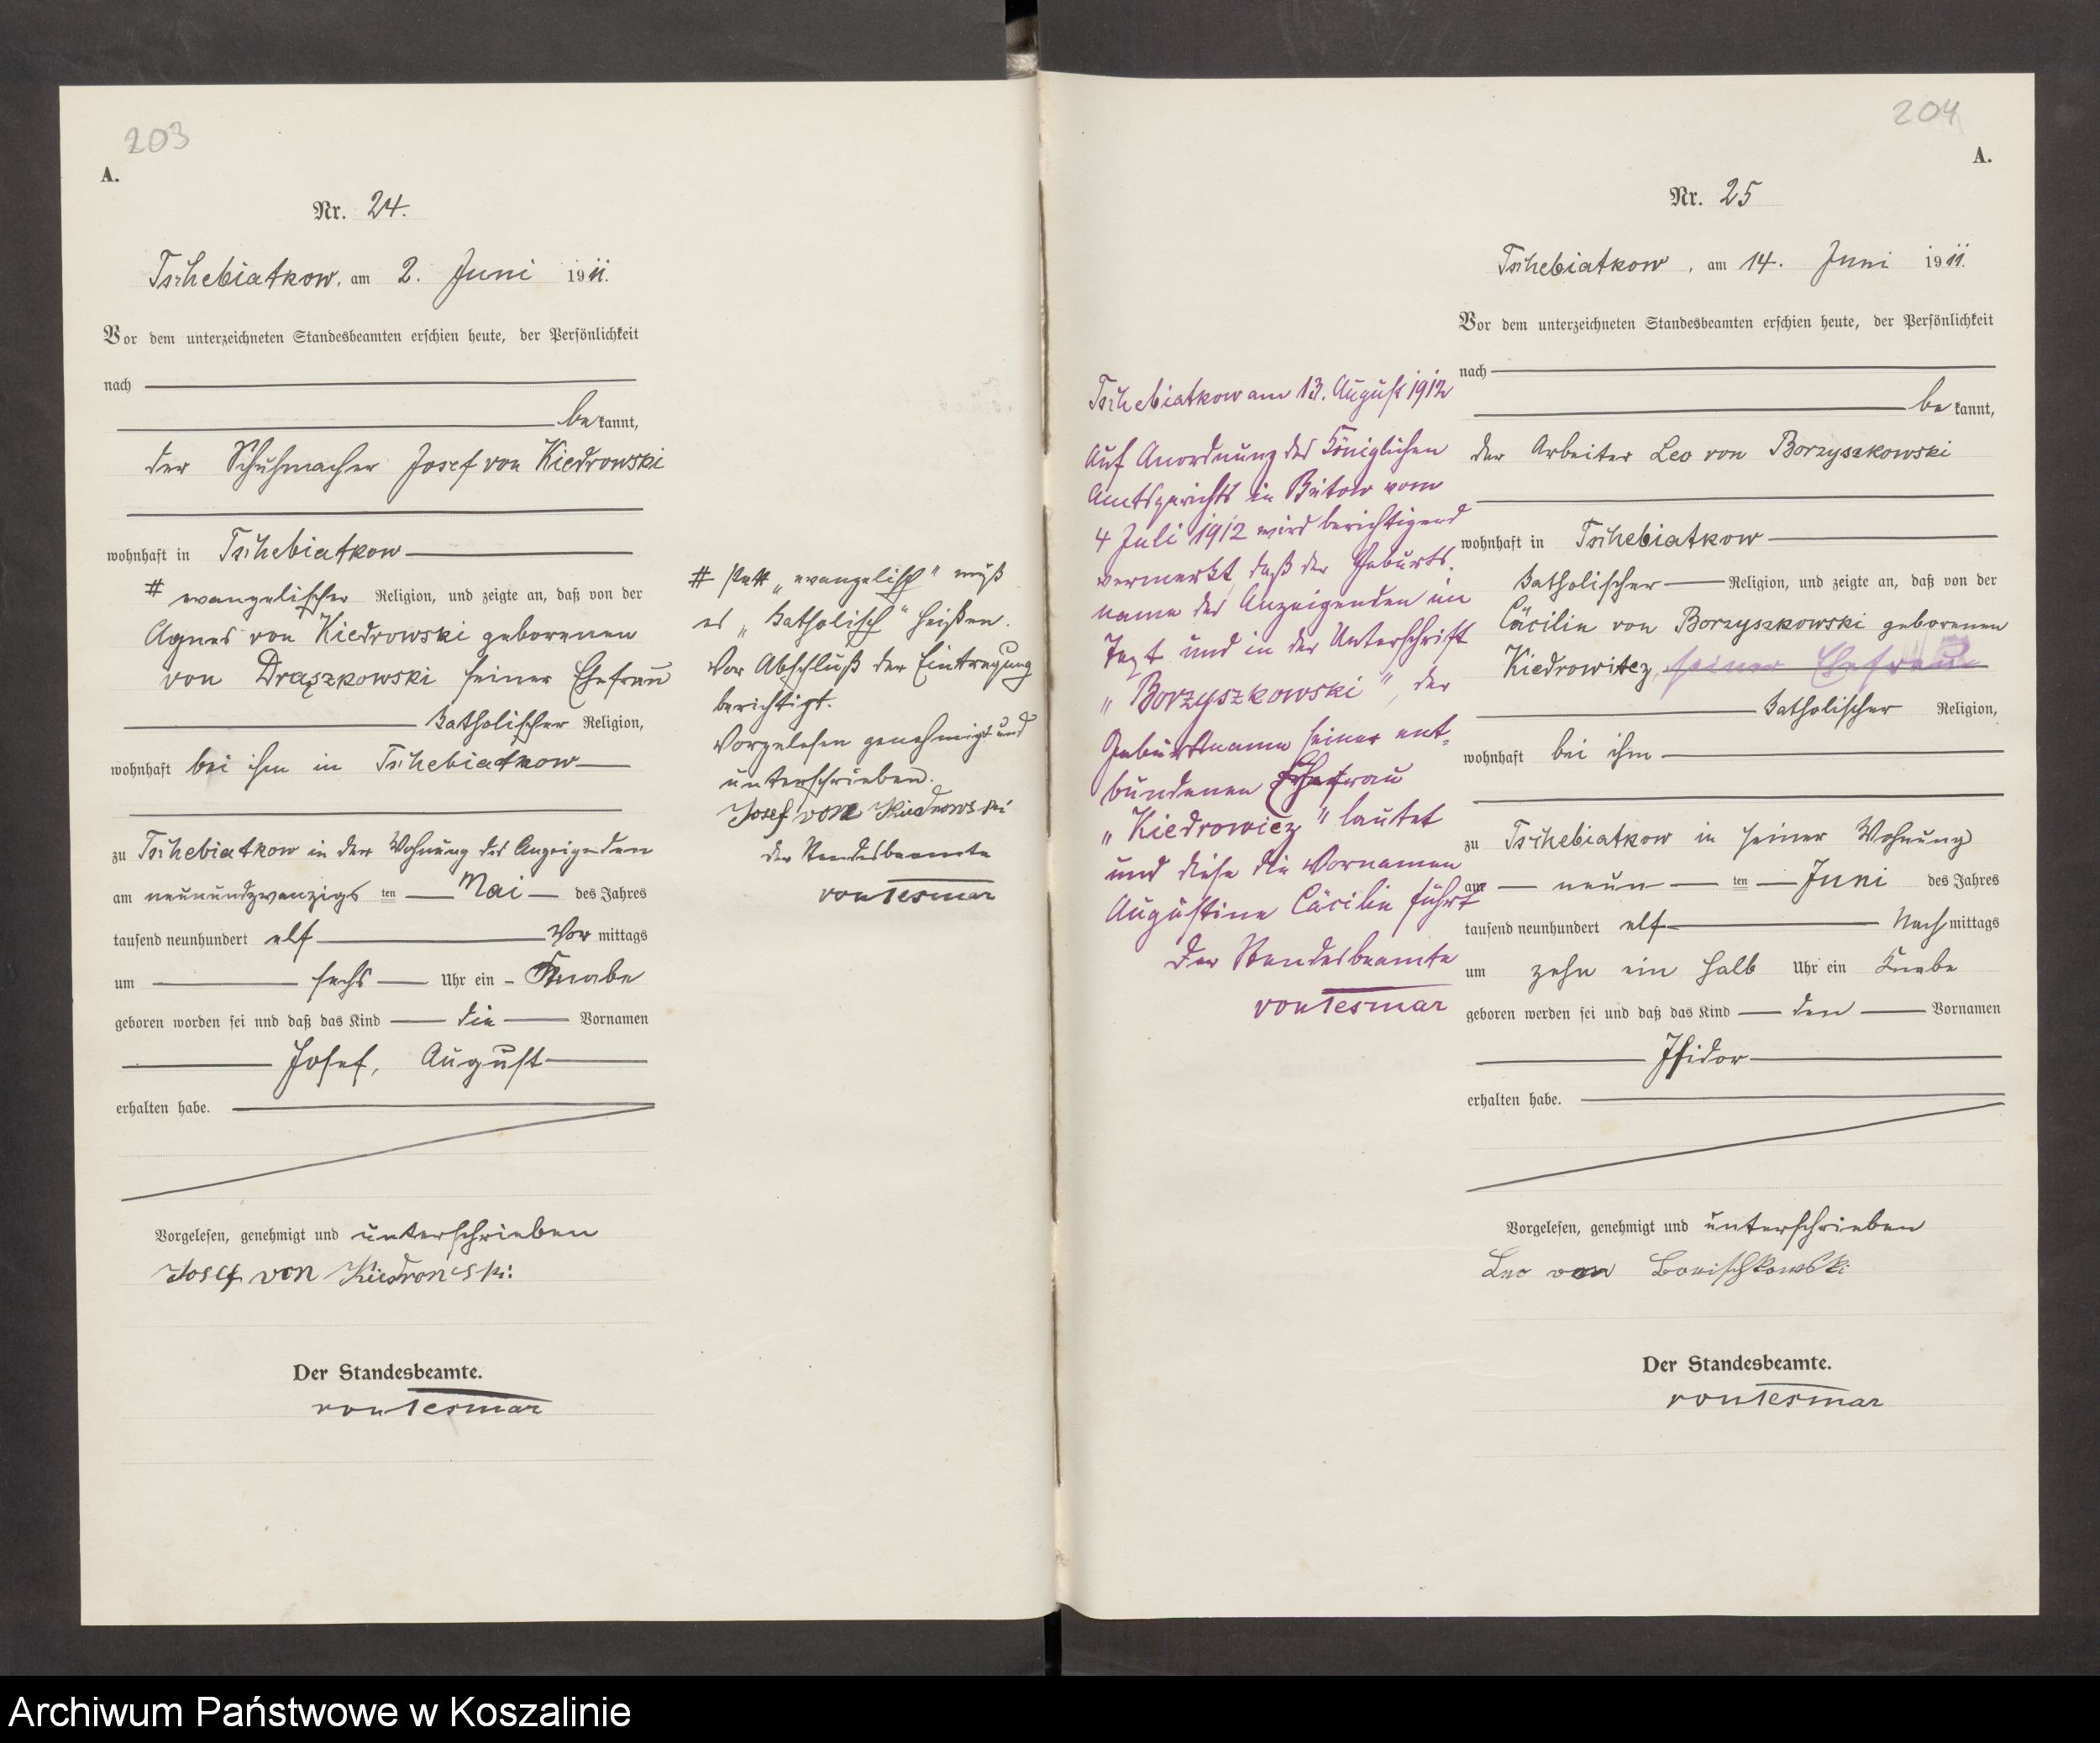 203
A.
Nr. 24.
Tschebiatkow, am 2. Juni 1911.
Vor dem unterzeichneten Standesbeamten erschien heute, der Persönlichkeit
nach
be kannt,
der Schuhmacher Josef von Kiedrowski
wohnhaft in Tschebiatkow
# evangelischer Religion, und zeigte an, daß von der
Agnes von Kiedrowski geborenen
von Draszkowski seiner Ehefrau
katholischer Religion,
wohnhaft bei ihm in Tschebiatkow
zu Tschebiatkow in der Wohnung des Anzeigenden
am neunundzwanzigs ten Mai des Jahres
tausend neunhundert elf Vor mittags
um sechs Uhr ein Knabe
geboren worden sei nnd daß das Kind die Vornamen
Josef, August
erhalten habe.
Vorgelesen, genehmigt und unterschrieben
Josef von Kiedrowski
Der Standesbeamte.
von Tesmar
# statt "evangelisch" muß
es "katholisch" heißen.
Vor Abschluß der Eintragung
berichtigt.
Vorgelesen genehmigt und
unterschrieben.
Josef von Kiedrowski
Der Standesbeamte
von Tesmar
204
A.
Nr. 25
Tschebiatkow, am 14. Juni 1911.
Vor dem unterzeichneten Standesbeamten erschien heute, der Persönlichkeit
nach
be kannt,
der Arbeiter Leo von Borzyszkowski
wohnhaft in Tschebiatkow
katholischer Religion, und zeigte an, daß von der
Cäcilie von Borzyszkowski geborenen
Kiedrowitez, seiner Ehefrau
katholischer Religion,
wohnhaft bei ihm
zu Tschebiatkow in seiner Wohnung
am neun ten Juni des Jahres
tausend neunhundert elf Nach mittags
um zehn ein halb Uhr ein Knabe
geboren werden sei und daß das Kind den Vornamen
Isidor
erhalten habe.
Vorgelesen, genehmigt und unterschrieben
Leo von Borischkowski
Der Standesbeamte.
von Tesmar
Tschebiatkow am 13. August 1912
Auf Anordnung des Königlichen
Amtsgerichts in Bütow vom
4 Juli 1912 wird berichtigend
vermerkt, daß der Geburts-
name des Anzeigenden im
Text und in der Unterschrift
"Borzyszkowski", der
Geburtsname seiner ent-
bundenen Ehefrau
"Kiedrowicz" lautet
und diese die Vornamen
Augustine Cäcilie führt
Der Standesbeamte
von Tesmar
Archiwum Państwowe w Koszalinie